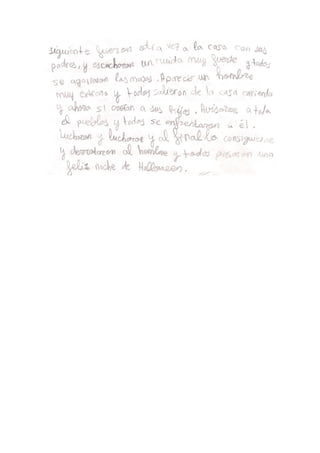 siguiente fueron otra vez a la casa con sus
padres, y escucharon un ruido muy fueste y todos
se agarraron las manos. Aparecer un hombre
muy extraño y todos salieron de la casa corriendo
y ahora si creian a sus hijos. Avisaron a todo
el pueblos y todos se enfrentaron a él.
Lucharon y lucharon y al final lo consiguieron
y derrotaron al hombre y todos pasaron una
feliz noche de Halloween.